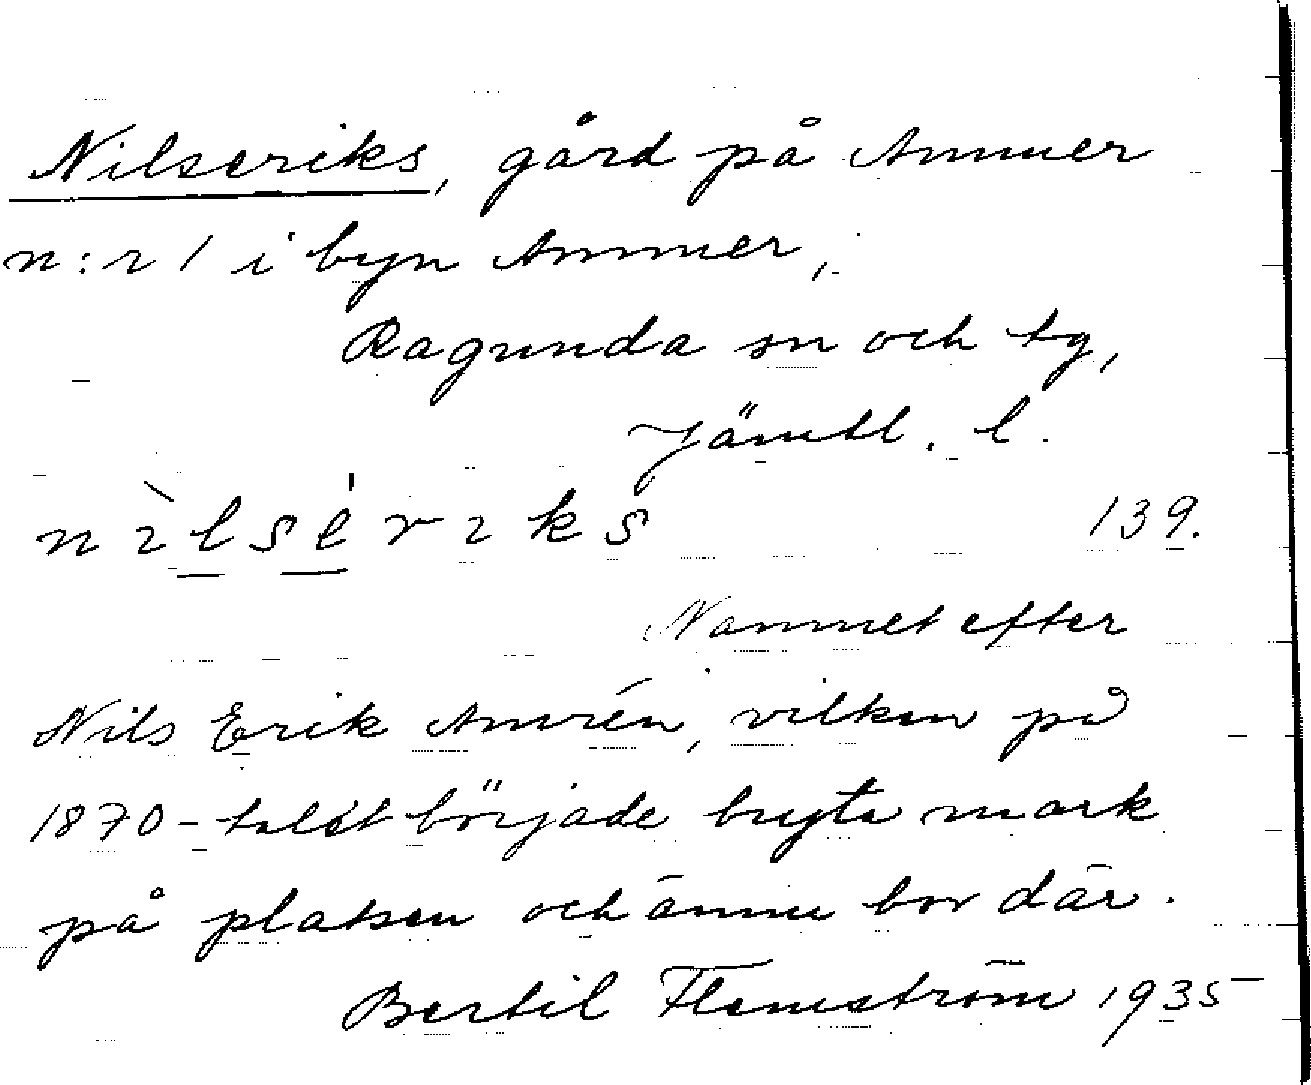 Nilseriks, gård på Ammer
n:r 1 i byn Ammer,
Ragunda sn och tg,
Jämtl. l.
nɩ̀lsériks 139.
Namnet efter
Nils Erik Amrén, vilken på
1870-talet började bryta mark
på platsen och ännu bor där.
Bertil Flemström 1935